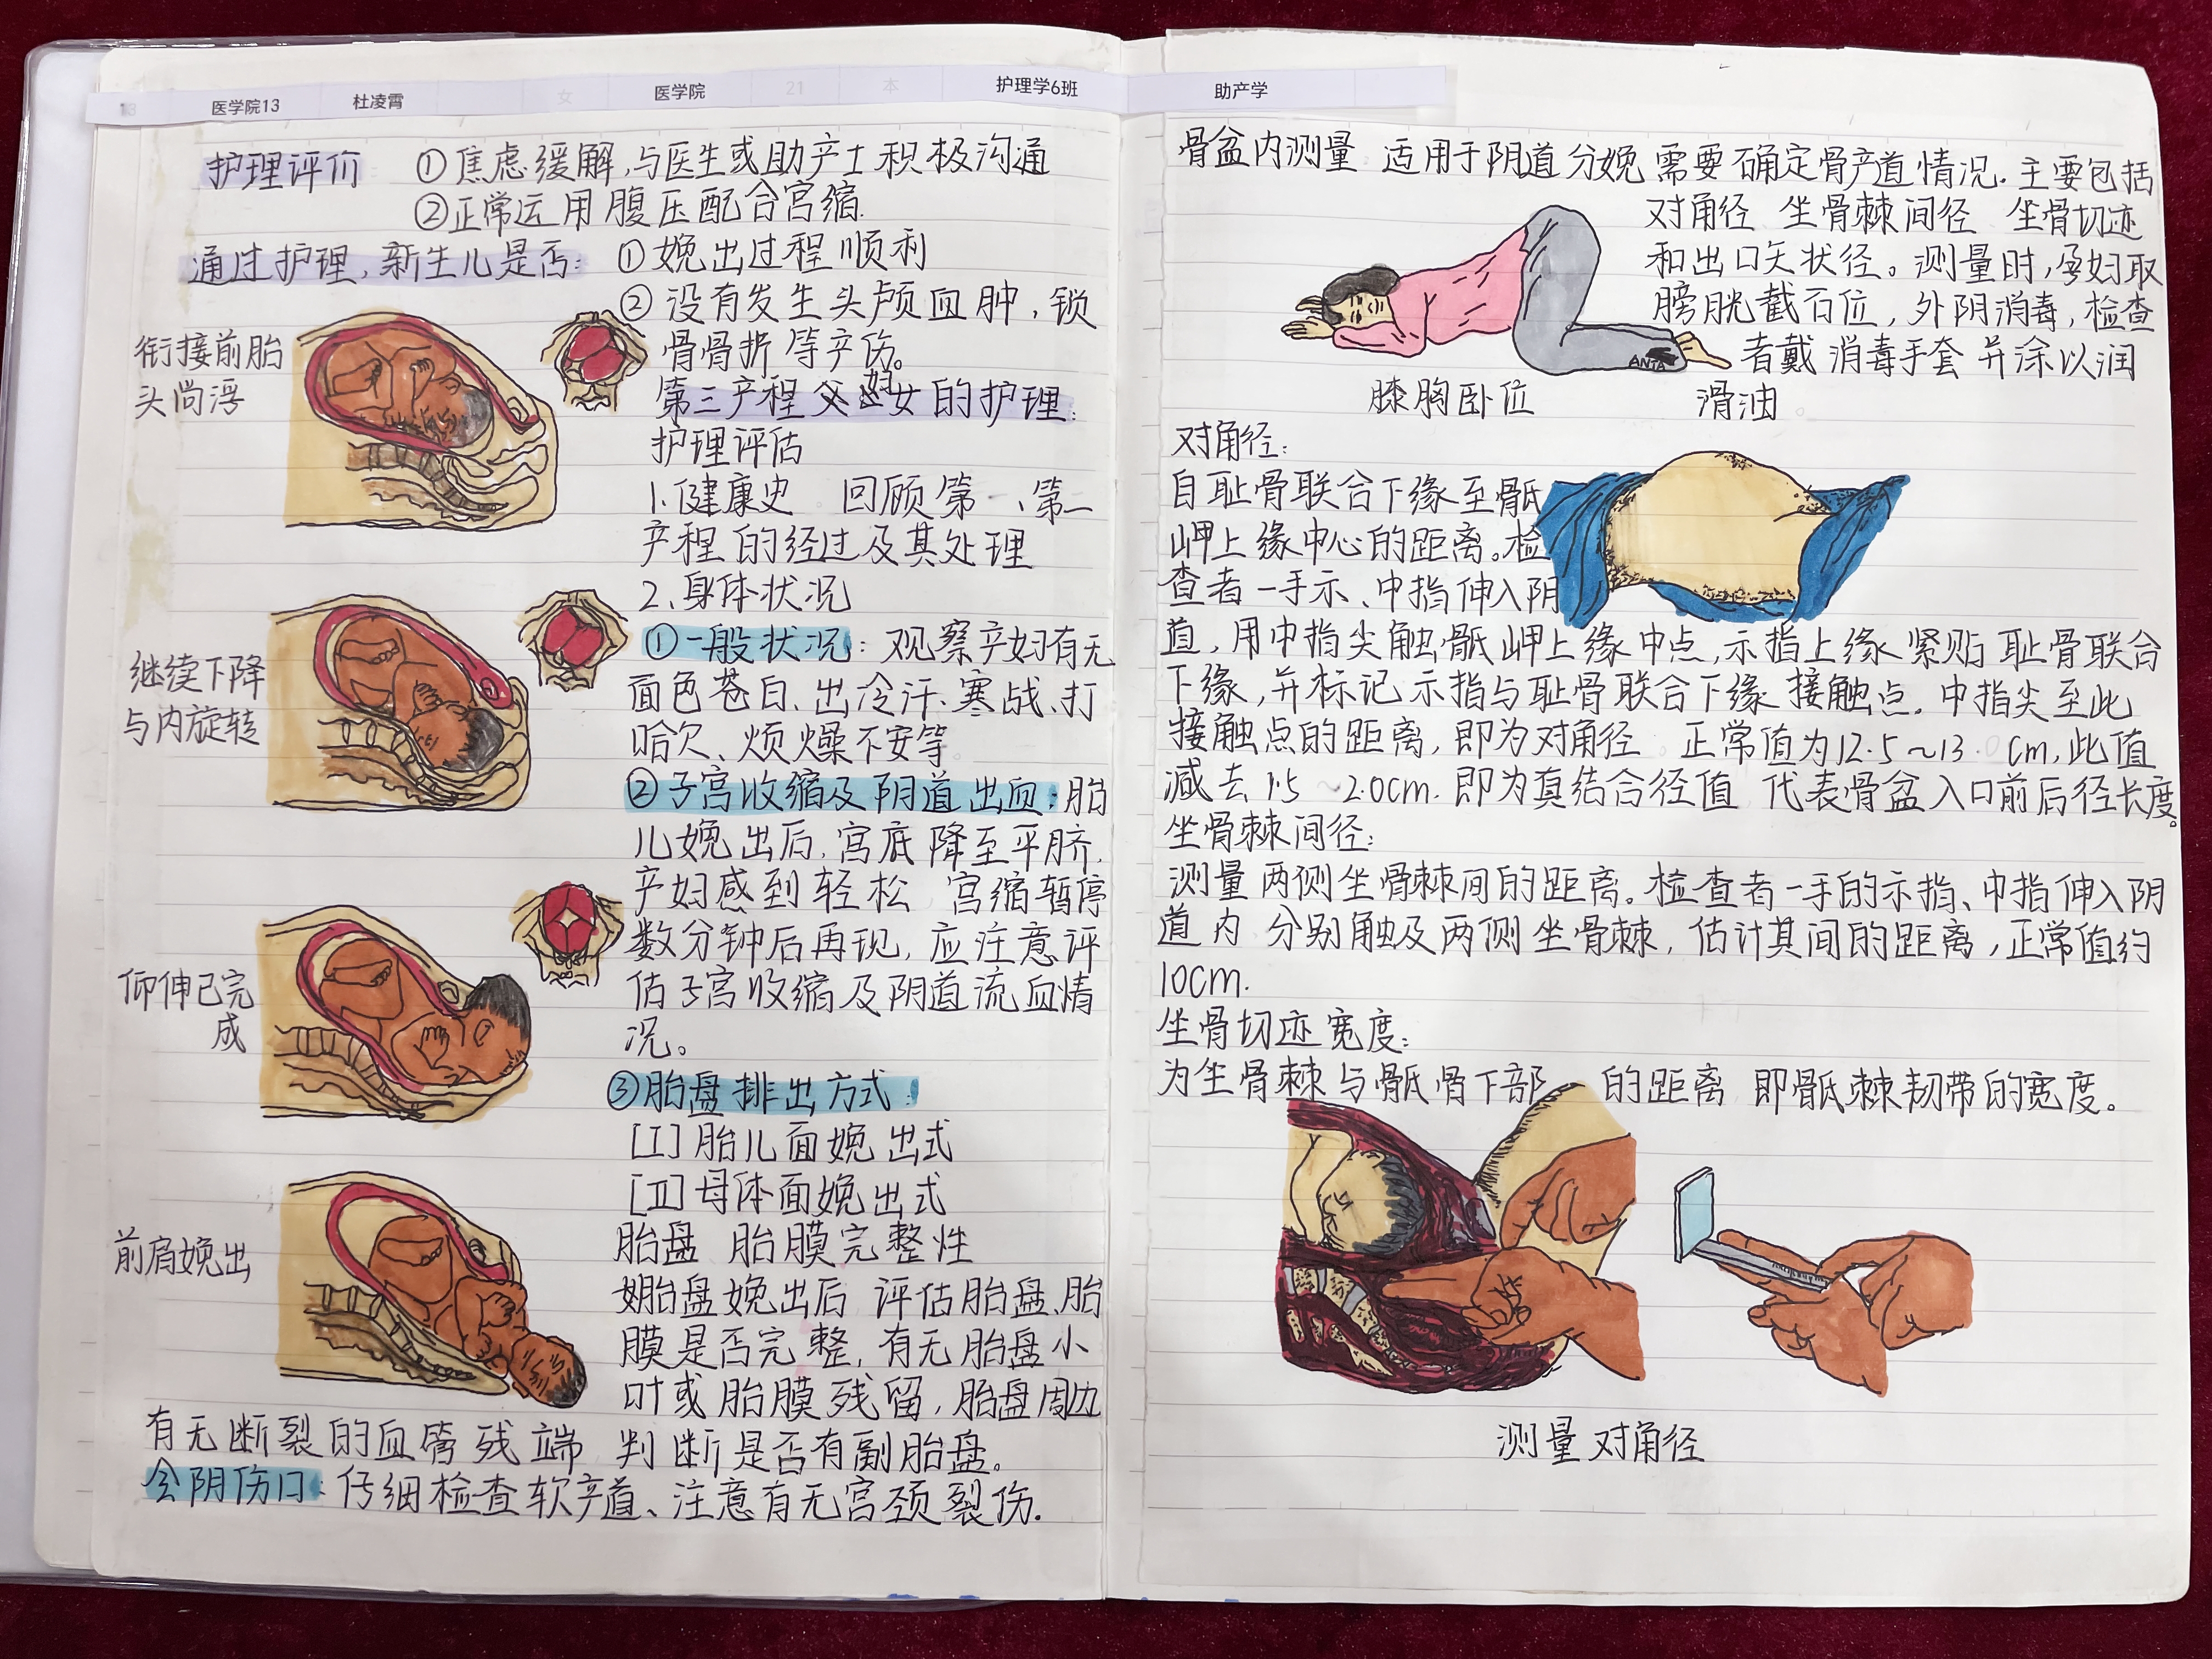 医学院13 杜凌霄 女 医学院 21 本 护理学6班 助产学
护理评价 ①焦虑缓解,与医生或助产士积极沟通
②正常运用腹压配合宫缩.
通过护理,新生儿是否: ①娩出过程顺利
②没有发生头颅血肿,锁
骨骨折等产伤。
第三产程 妇女的护理:
护理评估
1.健康史 回顾第一、第二
产程的经过及其处理
2、身体状况
①一般状况:观察产妇有无
面色苍白、出冷汗、寒战、打
哈欠、烦燥不安等
②子宫收缩及阴道出血:胎
儿娩出后,宫底降至平脐,
产妇感到轻松 宫缩暂停
数分钟后再现,应注意评
估子宫收缩及阴道流血情
况。
③胎盘排出方式:
[I]胎儿面娩出式
[II]母体面娩出式
胎盘 胎膜完整性
胎盘娩出后 评估胎盘、胎
膜是否完整,有无胎盘小
叶或胎膜残留,胎盘周边
有无断裂的血管残端 判断是否有副胎盘。
会阴伤口:仔细检查软产道、注意有无宫颈裂伤.
衔接前胎
头尚浮
继续下降
与内旋转
仰伸已完
成
前肩娩出
骨盆内测量 适用于阴道分娩需要确定骨产道情况.主要包括
对角径 坐骨棘间径 坐骨切迹
和出口矢状径。测量时,孕妇取
膀胱截石位,外阴消毒,检查
者戴消毒手套并涂以润
滑油。
ANTA
膝胸卧位
对角径:
自耻骨联合下缘至骶
岬上缘中心的距离。检
查者一手示、中指伸入阴
道,用中指尖触骶岬上缘中点,示指上缘紧贴耻骨联合
下缘,并标记示指与耻骨联合下缘接触点.中指尖至此
接触点的距离,即为对角径 正常值为12.5~13.0cm,此值
减去1.5~2.0cm.即为真结合径值 代表骨盆入口前后径长度。
坐骨棘间径:
测量两侧坐骨棘间的距离。检查者一手的示指、中指伸入阴
道内 分别触及两侧坐骨棘,估计其间的距离,正常值约
10cm.
坐骨切迹宽度:
为坐骨棘与骶骨下部 的距离 即骶棘韧带的宽度。
测量对角径